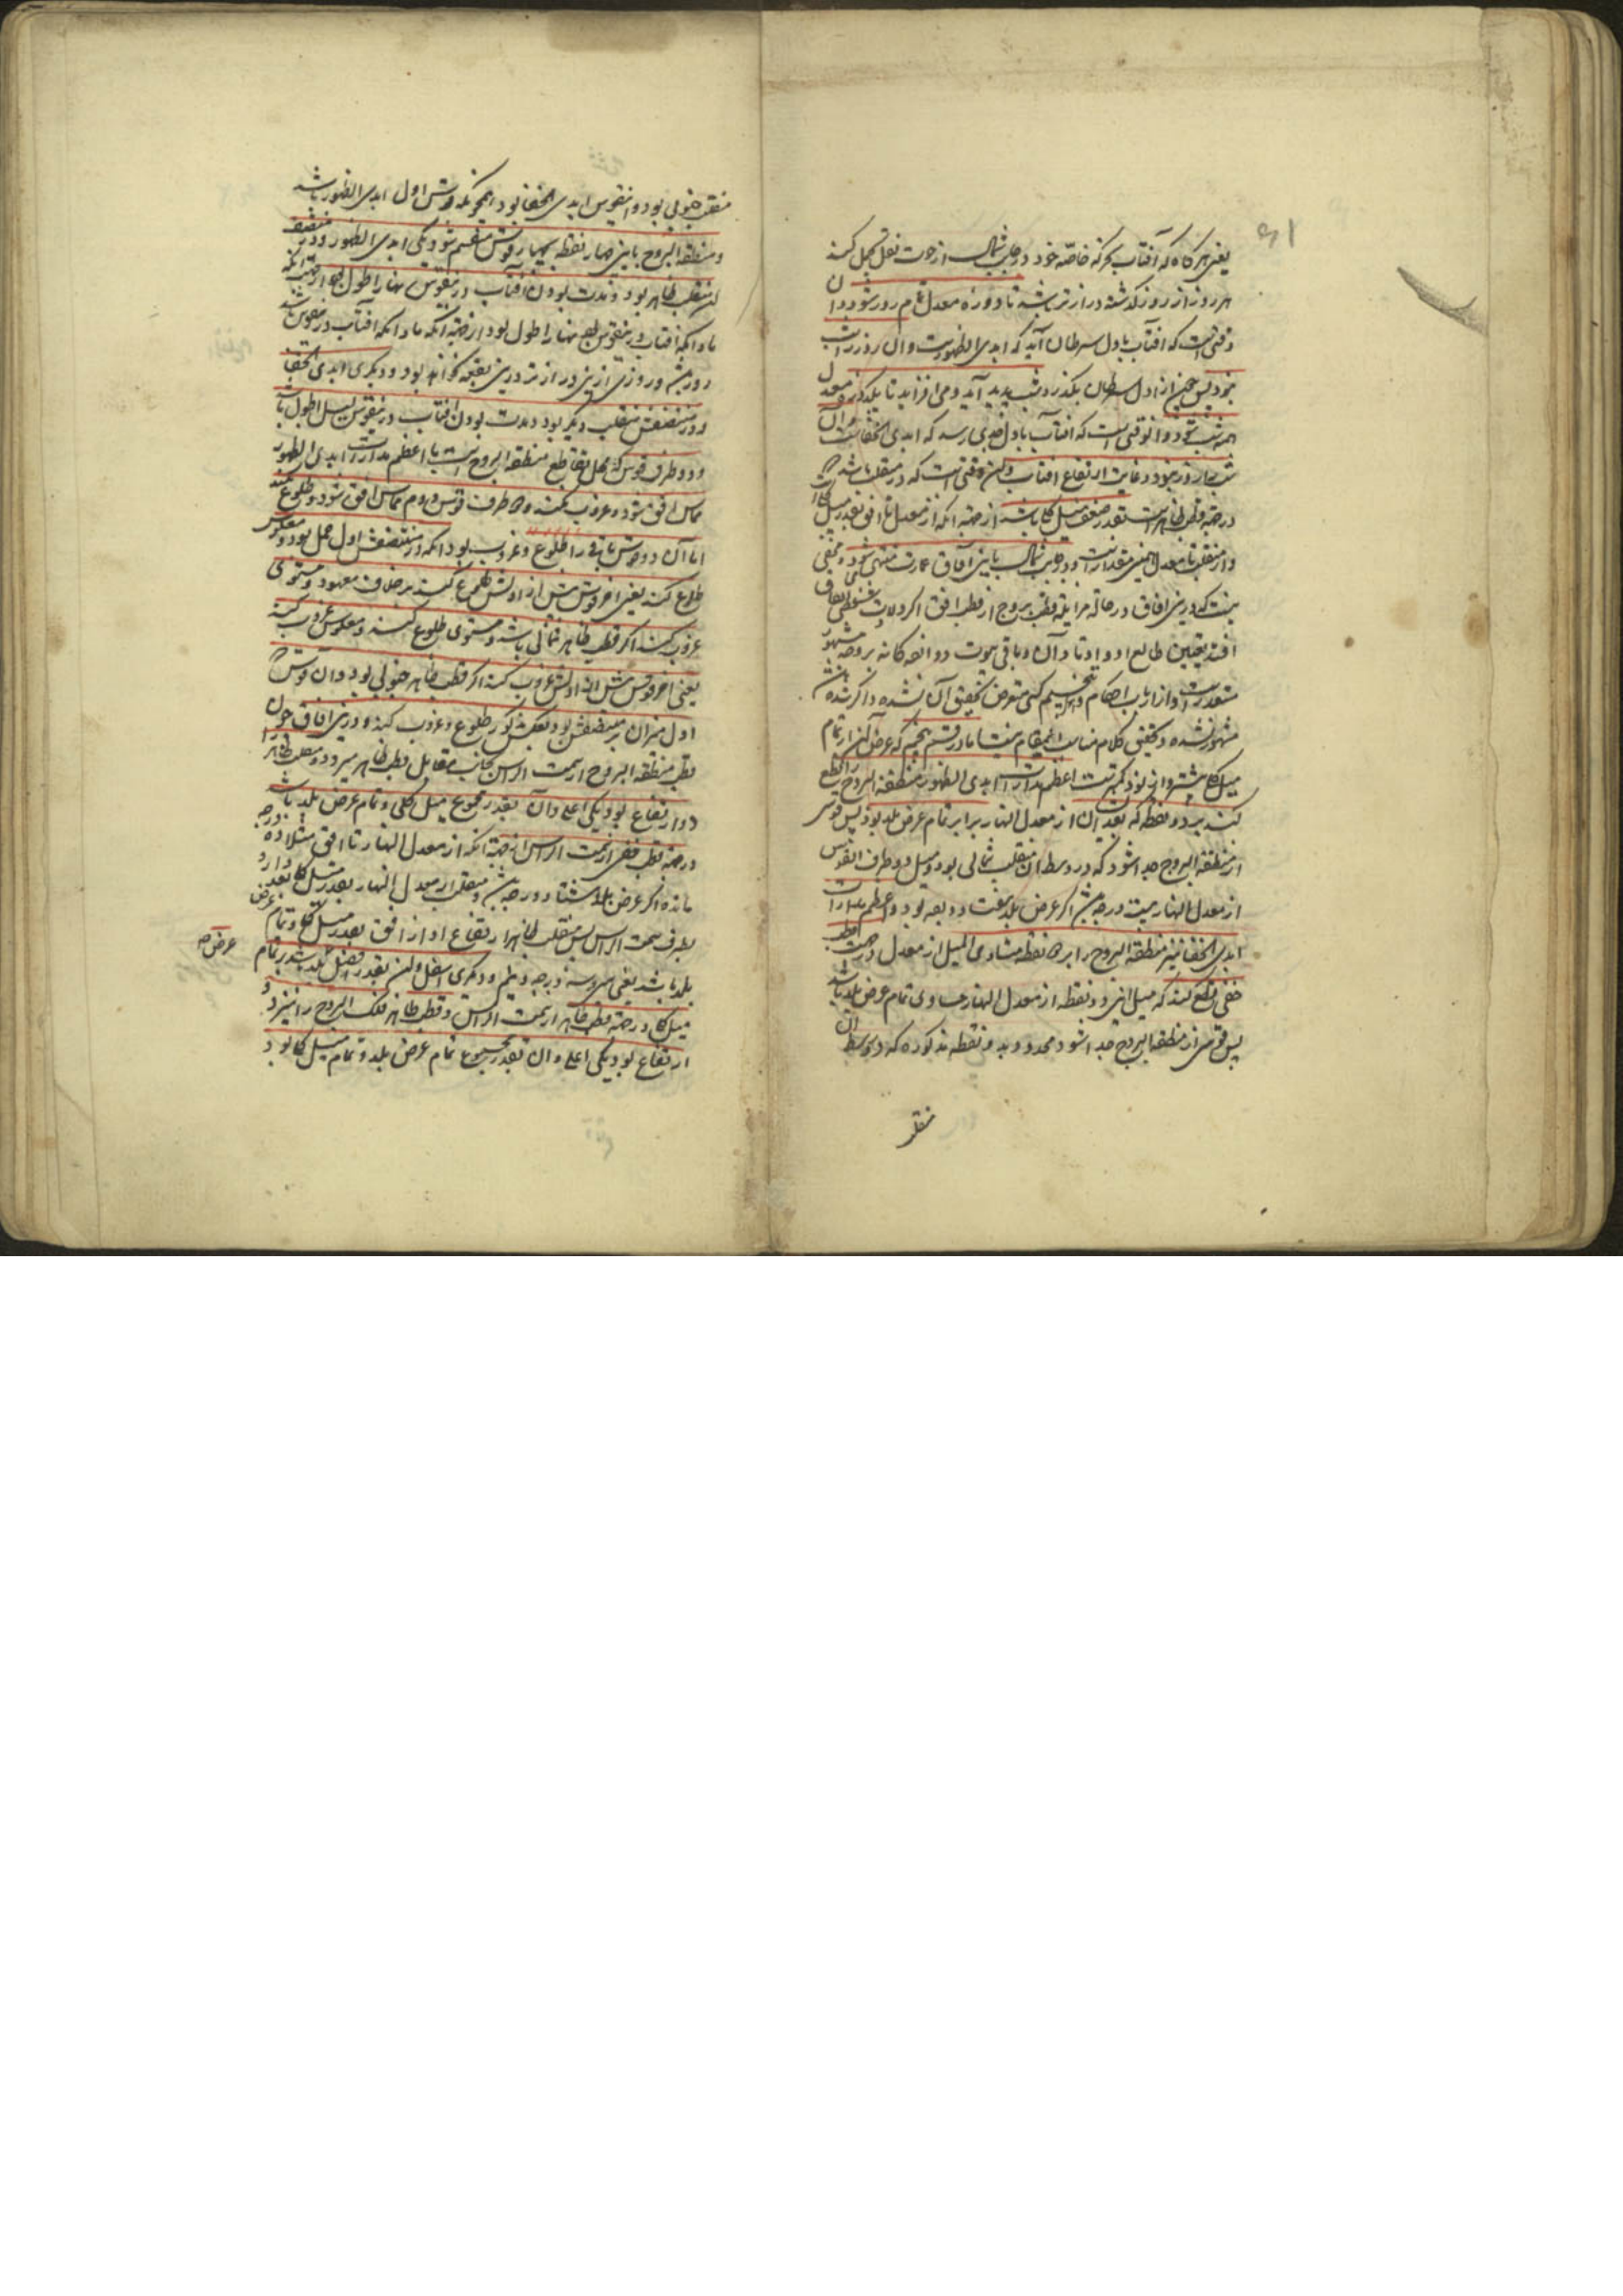 یعنی هرگاه که آفتاب بحرکة خاصّه خود در جانب شمال از حوت نقل بحمل کند
هر روز از روز گذشته درازتر باشد تا دوره معدل تمام روز شود و آن
وقتی است که آفتاب باول سرطان آید که ابدی الظهورست و آن روز را شب
نبود پس چون از اول سرطان بگذرد شب پدید آید و می افزاید تا یکدوره معدل
همه شب شود و آن وقتی است که آفتاب باول جدی رسد که ابدی الخفاست و آن
شب را روز نبود و غایت ارتفاع آفتاب وقتی است که در منقلب باشد
در جهة قطب ظاهرست بقدر ضعف میل کلی باشد از جهة آنکه از معدل تا افق بقدر میل کلی است
و از منقلب تا معدل همین مقدارست و در جانب شمال باین آفاق عمارت منتهی شود و مخفی
نیست که درین آفاق در حالة مزایلة قطب بروج از قطب افق اگر ولادت شخصی اتفاق
افتد تعیین طالع او و اوتاد آن و باقی بیوت دوازده کانه بروجه مشهور
متعذرست و از ارباب احکام و تنجیم کسی متعرض تحقیق آن نشده و اگر شده باشد
مشهور نشده و تحقیق کلام مناسب این مقام نیست اما در قسم پنجم که عرض آن از تمام
میل کلی بیشتر و از نود کمترست اعظم مدارات ابدی الظهور منطقة البروج را قطع
کند بر دو نقطه که بعد ایشان از معدل النهار برابر تمام عرض بلد بود پس قوسی
از منطقة البروج جدا شود که در وسط آن منقلب شمالی بود و میل دو طرف القوس
از معدل النهار بیست درجه مثلا اگر عرض بلد هفتاد درجه بود و اعظم مدارات
ابدی الخفا نیز منطقة البروج را بر دو نقطه متساوی المیل از معدل در جهت قطب
خفی قطع کند که میل این دو نقطه از معدل النهار مساوی تمام عرض بلد باشد
پس قوسی از منطقة البروج جدا شود محدود بدو نقطه مذکوره که در وسط آن
منقلب
منقلب جنوبی بود و این قوس ابدی الخفا بود همچونکه قوس اول ابدی الظهور باشد
و منطقة البروج باین چهار نقطه بچهار قوس منقسم شود یکی ابدی الظهور و در منتصفش
منقلب ظاهر بود و مدت بودن آفتاب در این قوس نهار اطول بود از جهة آنکه
مادام که آفتاب در این قوس بود نهار اطول بود از جهة آنکه مادام که آفتاب در این قوس باشد
روز باشد و روزی ازین درازتر درین بقعه نتواند بود و دیگری ابدی الخفا
و در منتصفش منقلب دیگر بود و مدت بودن آفتاب در این قوس لیل اطول باشد
و دو طرف قوس که محل تقاطع منطقة البروج است با اعظم مدارات ابدی الظهور
مماس افق شود و غروب نکند و دو طرف قوس دوم مماس افق شود و طلوع نکند
اما آن دو قوس باقی را طلوع و غروب بود آنکه در منتصفش اول حمل بود معکوس
طلوع کند یعنی آخر قوس پیش از اولش طلوع کند بر خلاف معهود و مستوی
غروب کند اگر قطب ظاهر شمالی باشد و مستوی طلوع کند و معکوس غروب کند
یعنی آخر قوس پیش از اولش غروب کند اگر قطب ظاهر جنوبی بود و آن قوس که
اول میزان بر منتصفش بود بعکس مذکور طلوع و غروب کند و درین آفاق چون
قطب منطقة البروج از سمت الراس بجانب مقابل قطب ظاهر میرود و منقلب ظاهر را
دو ارتفاع بود یکی اعلی و آن بقدر مجموع میل کلی و تمام عرض بلد باشد
در جهة قطب خفی از سمت الراس از جهة آنکه از معدل النهار تا افق مثلا ده درجه
مانده اگر عرض بلد هشتاد درجه باشد و منقلب از معدل النهار بقدر میل کلی بعد دارد
بطرف سمت الراس پس منقلب ظاهر را ارتفاع او از افق بقدر میل کلی و تمام عرض
بلد باشد یعنی سی و سه درجه و نیم و دیگری اسفل و این بقدر فضل عرض بلد باشد بر تمام
عرض صح
میل کلی در جهة قطب ظاهر از سمت الراس و قطب ظاهر فلک البروج را نیز دو
ارتفاع بود یکی اعلی و آن بقدر مجموع تمام عرض بلد و تمام میل کلی بود